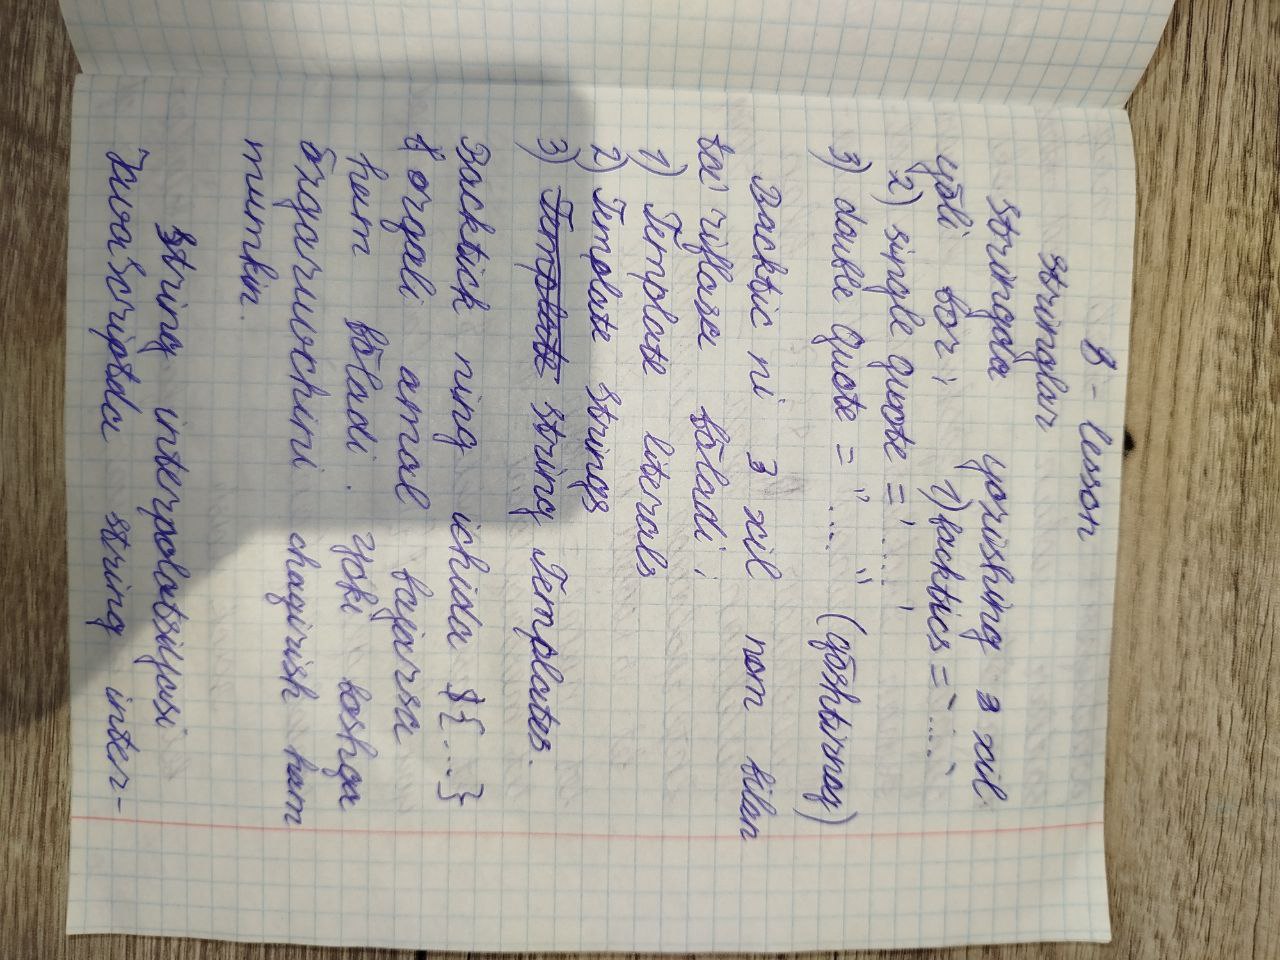 8 - lesson
Stringlar
Stringda yozishing 3 xil
yōli bor: 1) backtics = `....`
2) single quote = '.....'
3) double quote = "...." (qōshtirnoq)
Backtic ni 3 xil nom bilan
ta'riflasa bōladi:
1) Template literals
2) Template strings
3) String Templates.
Backtick ning ichida ${....}
orqali amal bajarsa
ham bōladi. yoki boshqa
ōzgaruvchini chaqirish ham
mumkin.
String interpolatsiyasi
JavaScriptda string inter-